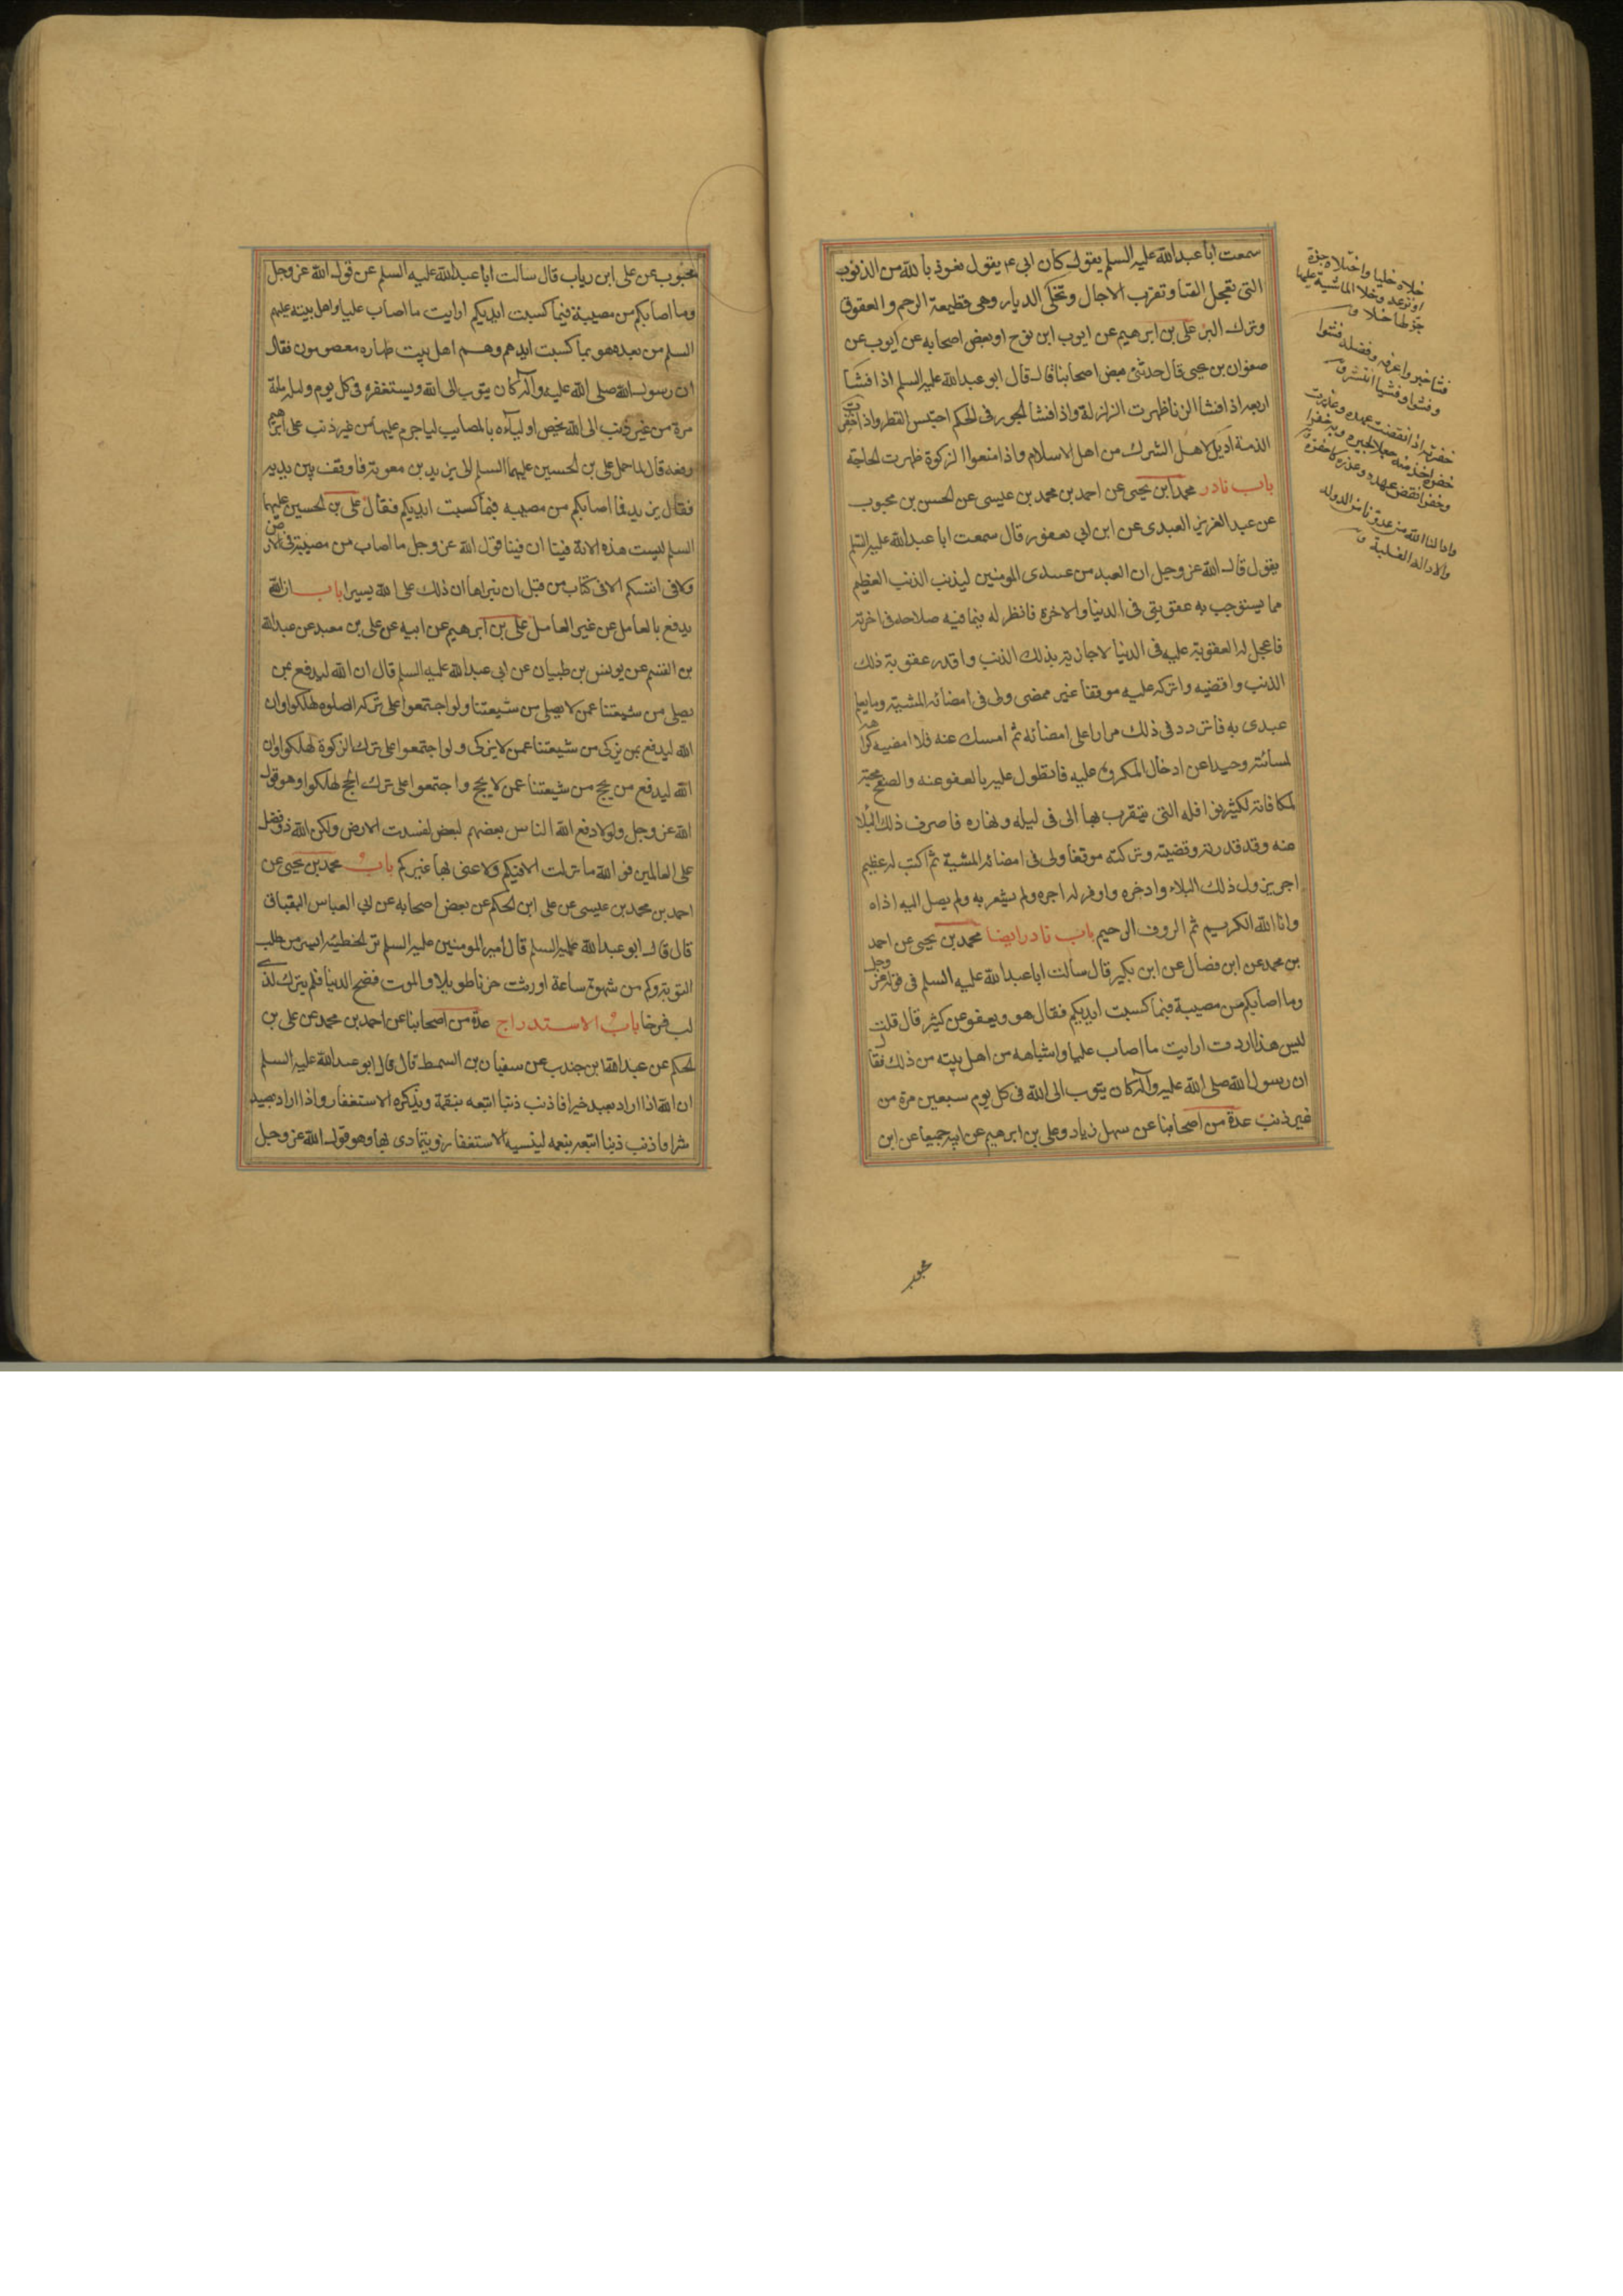 سمعت ابا عبدالله عليه السلم يقول كان ابى ع يقول نعوذ بالله من الذنوب
التى تعجل الفنا وتقرب الاجال وتخلى الديار وهى قطيعة الرحم والعقوق
وترك البر على بن ابرهيم عن ايوب ابن نوح او بعض اصحابه عن ايوب عن
صفوان بن يحيى قال حدثنى بعض اصحابنا قال قال ابو عبدالله عليه السلم اذا فشا
اربعة اذا فشا الزنا ظهرت الزلزلة واذا فشا الجور فى الحكم احتبس القطر واذا خفرت
الذمة اديل لاهل الشرك من اهل الاسلام واذا منعوا الزكوة ظهرت الحاجة
باب نادر محمد ابن يحيى عن احمد بن محمد بن عيسى عن الحسن بن محبوب
عن عبد العزيز العبدى عن ابن ابى يعفور قال سمعت ابا عبدالله عليه السلم
يقول قال الله عز وجل ان العبد من عبيدى المومنين ليذنب الذنب العظيم
مما يستوجب به عقوبتى فى الدنيا والاخرة فانظر له فيما فيه صلاحه فى اخرته
فاعجل له العقوبة عليه فى الدنيا لاجازيه بذلك الذنب واقدر عقوبة ذلك
الذنب واقضيه واتركه عليه موقفا غير ممضى ولى فى امضائه المشية وما يعلم
عبدى به فاتردد فى ذلك مرارا على امضائه ثم امسك عنه فلا امضيه كراهة
لمسائته وحيدا عن ادخال المكروه عليه فاتطول عليه بالعفو عنه والصفح محبة
لمكافاته لكثير نوافله التى يتقرب بها الى فى ليله ونهاره فاصرف ذلك البلا
عنه وقد قدرته وقضيته وتركته موقفا ولى فى امضائه المشية ثم اكتب له عظيم
اجر نزول ذلك البلاء وادخره واوفر له اجره ولم يشعر به ولم يصل اليه اذاه
وانا الله الكريم ثم الروف الرحيم باب نادر ايضا محمد بن يحيى عن احمد
بن محمد عن ابن فضال عن ابن بكير قال سالت ابا عبدالله عليه السلم فى قوله عز وجل
وما اصابكم من مصيبة فبما كسبت ايديكم فقال هو ويعفو عن كثير قال قلت
ليس هذا اردت ارايت ما اصاب عليا واشباهه من اهل بيته من ذلك فقال
ان رسول الله صلى الله عليه وآله كان يتوب الى الله فى كل يوم سبعين مرة من
غير ذنب عدة من اصحابنا عن سهل زياد وعلى بن ابرهيم عن ابيه جميعا عن ابن
محبوب
محبوب عن على ابن رياب قال سالت ابا عبدالله عليه السلم عن قول الله عز وجل
وما اصابكم من مصيبة فبما كسبت ايديكم ارايت ما اصاب عليا واهل بيته عليهم
السلم من بعده هو بما كسبت ايديهم وهم اهل بيت طهارة معصومون فقال
ان رسول الله صلى الله عليه وآله كان يتوب الى الله ويستغفره فى كل يوم وليلة ماية
مرة من غير ذنب الى الله يخص اولياءه بالمصايب لياجرهم عليها من غير ذنب على ابرهيم
رفعه قال لما حمل على بن الحسين عليهما السلم الى يزيد بن معوية فاوقف بين يديه
فقال يزيد فما اصابكم من مصيبه فبما كسبت ايديكم فقال على بن الحسين عليهما
السلم ليست هذه الاية فينا ان فينا قول الله عز وجل ما اصاب من مصيبة فى الارض
ولا فى انفسكم الا فى كتاب من قبل ان نبراها ان ذلك على الله يسير باب ان الله
يدفع بالعامل عن غير العامل على بن ابرهيم عن ابيه عن على بن معبد عن عبدالله
بن القسم عن يونس بن ظبيان عن ابى عبدالله عليه السلم قال ان الله ليدفع بمن
يصلى من شيعتنا عمن لا يصلى من شيعتنا ولو اجتمعوا على ترك الصلوة لهلكوا وان
الله ليدفع بمن يزكى من شيعتنا عمن لا يزكى ولو اجتمعوا على ترك الزكوة لهلكوا وان
الله ليدفع من يحج من شيعتنا عمن لا يحج واجتمعوا على ترك الحج لهلكوا وهو قول
الله عز وجل ولولا دفع الله الناس بعضهم لبعض لفسدت الارض ولكن الله ذو فضل
على العالمين فوالله ما نزلت الا فيكم ولا عنى بها غيركم باب محمد بن يحيى عن
احمد بن محمد بن عيسى عن على ابن الحكم عن بعض اصحابه عن ابى العباس البقباق
قال قال ابو عبدالله عليه السلم قال امير المومنين عليه السلم ترك الخطيئة ايسر من طلب
التوبة وكم من شهوة ساعة اورثت حزنا طويلا والموت فضح الدنيا فلم يترك لذى
لب فرحا باب الاستدراج عدة من اصحابنا عن احمد بن محمد عن على بن
الحكم عن عبدالله ابن جندب عن سفيان بن السمط قال قال ابو عبدالله عليه السلم
ان الله اذا اراد بعبد خيرا فاذنب ذنبا اتبعه بنقمة ويذكره الاستغفار واذا اراد بعبد
شرا فاذنب ذنبا اتبعه بنعمه لينسيه الاستغفار ويتمادى بها وهو قول الله عز وجل